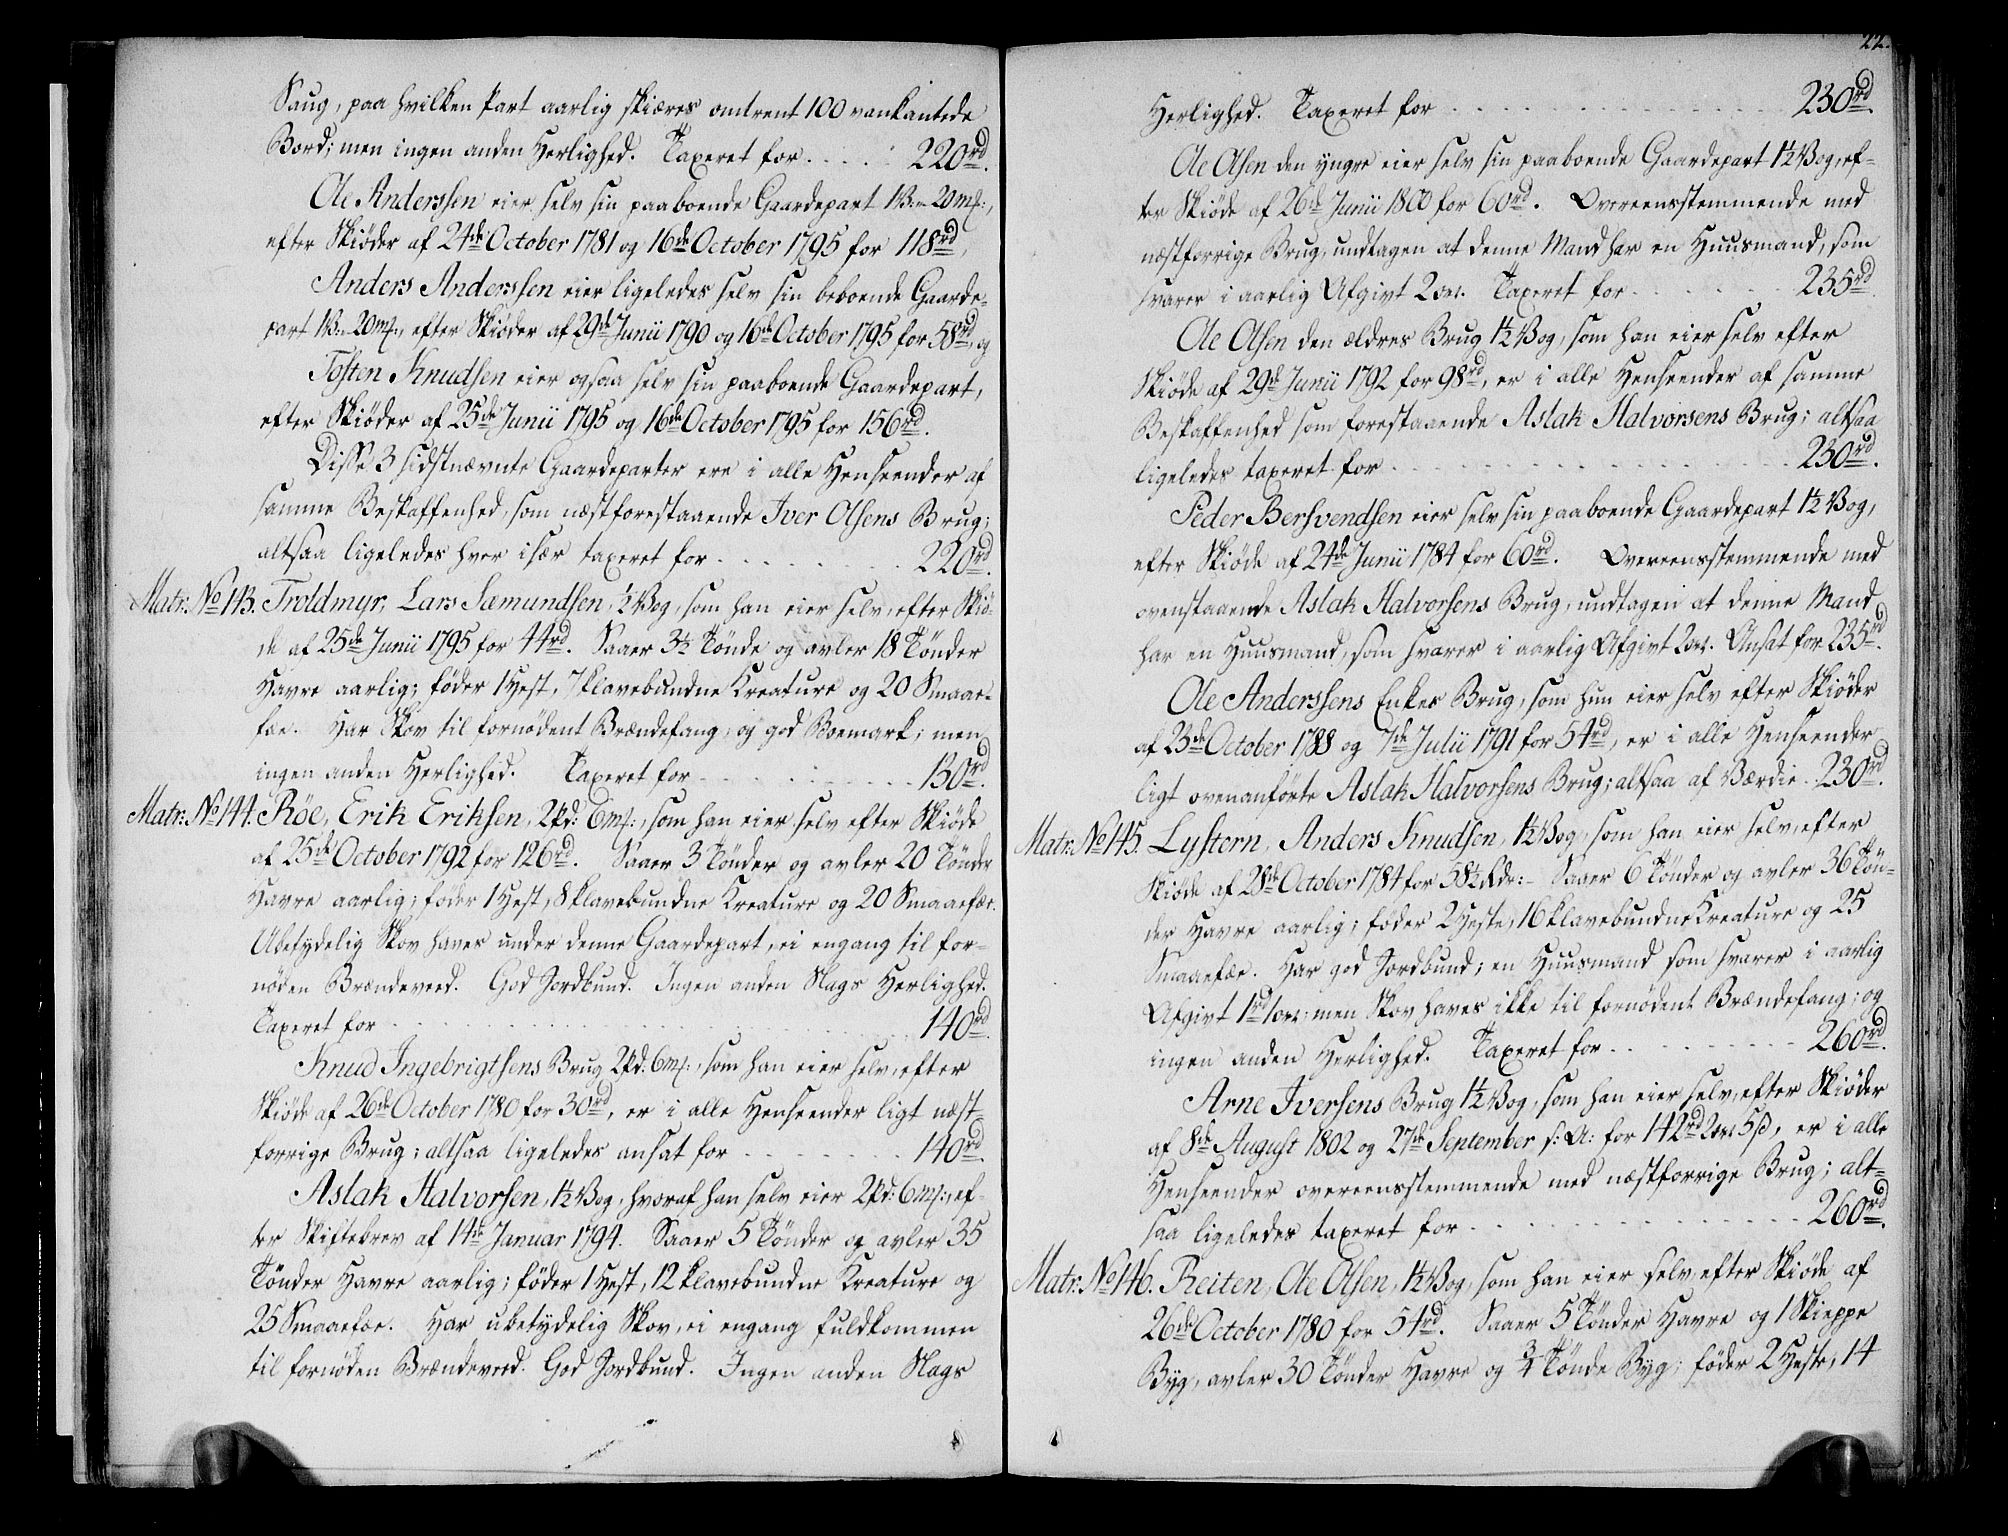 Saug, paa hvilken Part aarlig skiæres omtrent 100 vankantede
Bord; men ingen anden Herlighed. Taxeret for . . . . . 220rd.
Ole Anderssen eier selv sin paaboende Gaardepart 1V: 20mk:,
efter Skiøder af 24de October 1781 og 16de October 1795 for 118rd,
Anders Anderssen eier ligeledes selv sin beboende Gaarde-
part 1V: 20mk:, efter Skiøder af 29de Junii 1790 og 16de October 1795 for 58rd, og
Tosten Knudsen eier ogsaa selv sin paaboende Gaardepart,
efter Skiøder af 25de Junii 1795 og 16de October 1795 for 156rd.
Disse 3 sidstnævnte Gaardeparter ere i alle Henseender af
samme Beskaffenhed, som næstforestaaende Iver Olsens Brug;
altsaa ligeledes hver især taxeret for . . . . . . . . 220rd.
Matr: No 143. Troldmyr, Lars Sæmundsen, ½ Vog, som han eier selv, efter Skiö-
de af 25de Junii 1795 for 44rd. Saaer 3½ Tönde og avler 18 Tönder
Havre aarlig; föder 1 Hest, 7 klavebundne Kreature og 20 Smaae-
fæe. Har Skov til fornödent Brændefang, og god Boemark; men
ingen anden Herlighed. Taxeret for . . . . . . . . 130rd.
Matr: No 144. Röe, Erik Eriksen, 2Pd: 6mk:, som han eier selv efter Skiöde
af 25de October 1792 for 126rd. Saaer 3 Tönder og avler 20 Tönder
Havre aarlig; föder 1 Hest, 8 klavebundne Kreature og 20 Smaaefæe.
Ubetydelig Skov haves under denne Gaardepart, ei engang til for-
nöden Brændeveed. God Jordbund. Ingen anden Slags Herlighed.
Taxeret for . . . . . . . . . . . . . . . . 140rd.
Knud Ingebrigtsens Brug 2Pd: 6mk:, som han eier selv, efter
Skiöde af 26de October 1780 for 30rd, er i alle Henseender ligt næst-
forrige Brug; altsaa ligeledes ansat for . . . . . . . 140rd.
Aslak Halvorsen, 1½ Vog, hvoraf han selv eier 2Pd: 6mk:, ef-
ter Skiftebrev af 14de Januar 1794. Saaer 5 Tönder og avler 35
Tönder Havre aarlig; föder 1 Hest, 12 klavebundne Kreature og
25 Smaaefæe. Har ubetydelig Skov, ei engang fuldkommen
til fornöden Brændeveed. God Jordbund. Ingen anden Slags
22.
Herlighed. Taxeret for . . . . . . . . . . . . . 230rd.
Ole Olsen den yngre eier selv sin paaboende Gaardepart 1½ Vog, ef-
ter Skiöde af 26de Junii 1800 for 60rd. Overeensstemmende med
næstforrige Brug, undtagen at denne Mand har en Huusmand, som
svarer i aarlig Afgivt 2 Ort. Taxeret for . . . . . . . 235rd.
Ole Olsen den ældres Brug 1½ Vog, som han eier selv efter
Skiöde af 29de Junii 1792 for 98rd, er i alle Henseender af samme
Beskaffenhed som forestaaende Aslak Halvorsens Brug; altsaa
ligeledes taxeret for . . . . . . . . . . . . . 230rd.
Peder Bersvendsen eier selv sin paaboende Gaardepart 1½ Vog,
efter Skiöde af 24de Junii 1784 for 60rd. Overeensstemmende med
ovenstaaende Aslak Halvorsens Brug, undtagen at denne Mand
har en Huusmand, som svarer i aarlig Afgivt 2 Ort. Ansat for 235rd.
Ole Anderssens Enkes Brug, som hun eier selv efter Skiöder
af 23de October 1788 og 7de Julii 1791 for 54rd, er i alle Henseender
ligt ovenanförte Aslak Halvorsens Brug; altsaa af Værdie . . 230rd.
Matr: No 145. Lystern, Anders Knudsen, 1½ Vog, som han eier selv, efter
Skiöde af 28de October 1784 for 58½ Rdr:- Saaer 6 Tönder og avler 36 Tön-
der Havre aarlig; föder 2 Heste, 16 klavebundne Kreature og 25
Smaaefæe. Har god Jordbund; en Huusmand som svarer i aarlig
Afgivt 1rd 1 Ort; men Skov haves ikke til fornödent Brændefang; og
ingen anden Herlighed. Taxeret for . . . . . . . . 260rd.
Arne Iversens Brug 1½ Vog, som han eier selv, efter Skiöder
af 8de August 1802 og 27de September s: A: for 142rd 2 Ort 5 ß, er i alle
Henseender overeensstemmende med næstforrige Brug; alt-
saa ligeledes taxeret for . . . . . . . . . . . . . 260rd.
Matr: No 146. Reiten, Ole Olsen, 1½ Vog, som han eier selv, efter Skiöde af
26de October 1780 for 54rd. Saaer 5 Tönder Havre og 1 Skieppe
Byg, avler 30 Tönder Havre og ¾ Tönde Byg; föder 2 Heste, 14